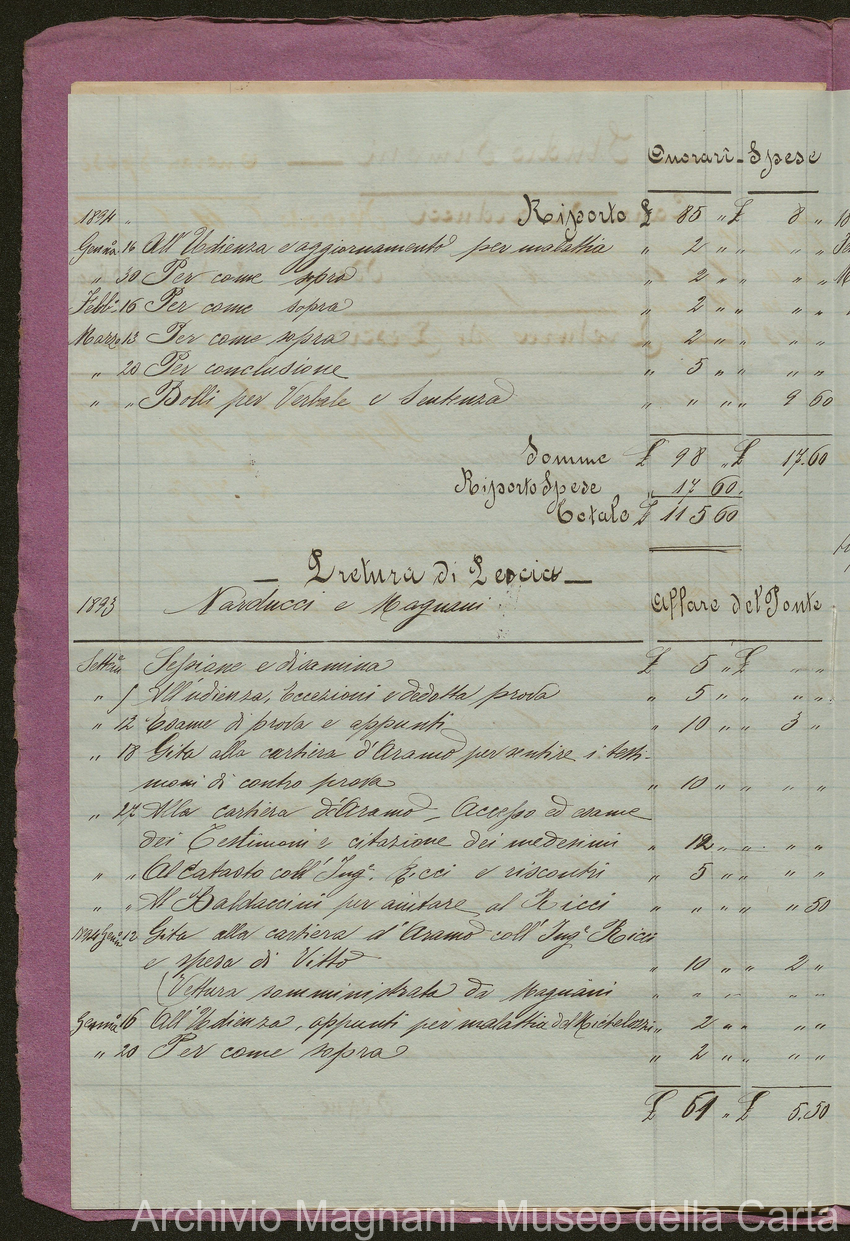 Onorari - Spese
1894 „ Riporto £ 85 „ £ 8 „
Genn.o 16 All'Udienza e aggiornamento per malattia „ 2 „ „ „ „
„ 30 Per come sopra „ 2 „ „ „ „
Febb.o 16 Per come sopra „ 2 „ „ „ „
Marzo 13 Per come sopra „ 2 „ „ „ „
„ 20 Per conclusione „ 5 „ „ „ „
„ „ Bolli per Verbale e Sentenza „ „ „ „ 9 60
Somme £ 98 „ £ 17.60
Riporto Spese „ 17 60.
Totale £ 115 60
— Pretura di Pescia —
1893 Narducci e Magnani Affare del Ponte
Sett.e Sessione e disamina £ 5 „ £ „ „
„ 5 All'udienza, Eccezioni e dedotta prova „ 5 „ „ „ „
„ 12 Esame di prova e appunti „ 10 „ „ 3 „
„ 18 Gita alla cartiera d'Aramo per sentire i testi-
moni di contro prova „ 10 „ „ „ „
„ 27 Alla cartiera d'Aramo, Accesso ed esame
dei Testimoni e citazione dei medesimi „ 12 „ „ „ „
„ „ Al Catasto coll'Ing.e Ricci e riscontri „ 5 „ „ „ „
„ „ Al Baldaccini per aiutare al Ricci „ „ „ „ „ 50
1894 Genn.o 12 Gita alla cartiera d'Aramo coll'Ing.e Ricci
e spesa di Vitto „ 10 „ „ 2 „
(Vettura somministrata da Magnani „ „ „ „ „
Genn.o 16 All'Udienza, appunti per malattia del Michelozzi „ 2 „ „ „ „
„ 20 Per come sopra „ 2 „ „ „ „
£ 61 „ £ 5.50
Archivio Magnani - Museo della Carta